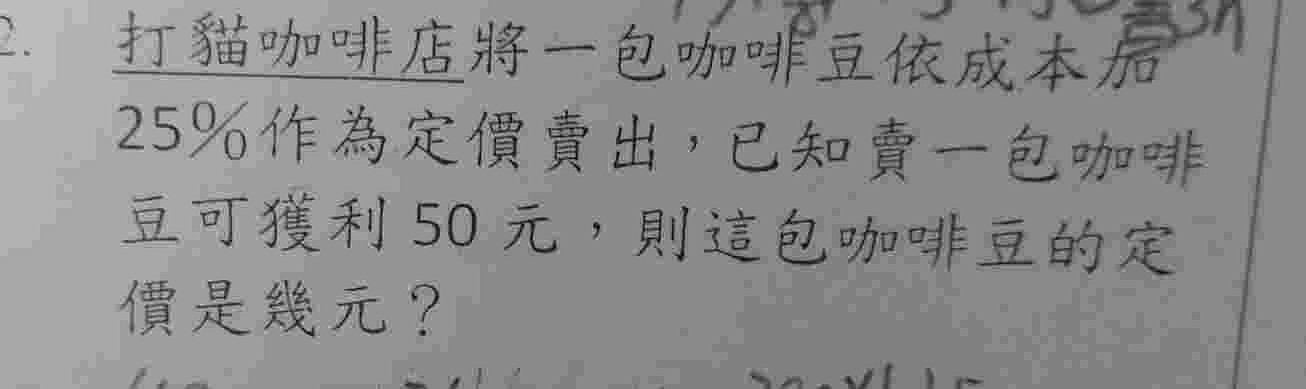 2. 打貓咖啡店將一包咖啡豆依成本加
25%作為定價賣出，已知賣一包咖啡
豆可獲利 50 元，則這包咖啡豆的定
價是幾元？